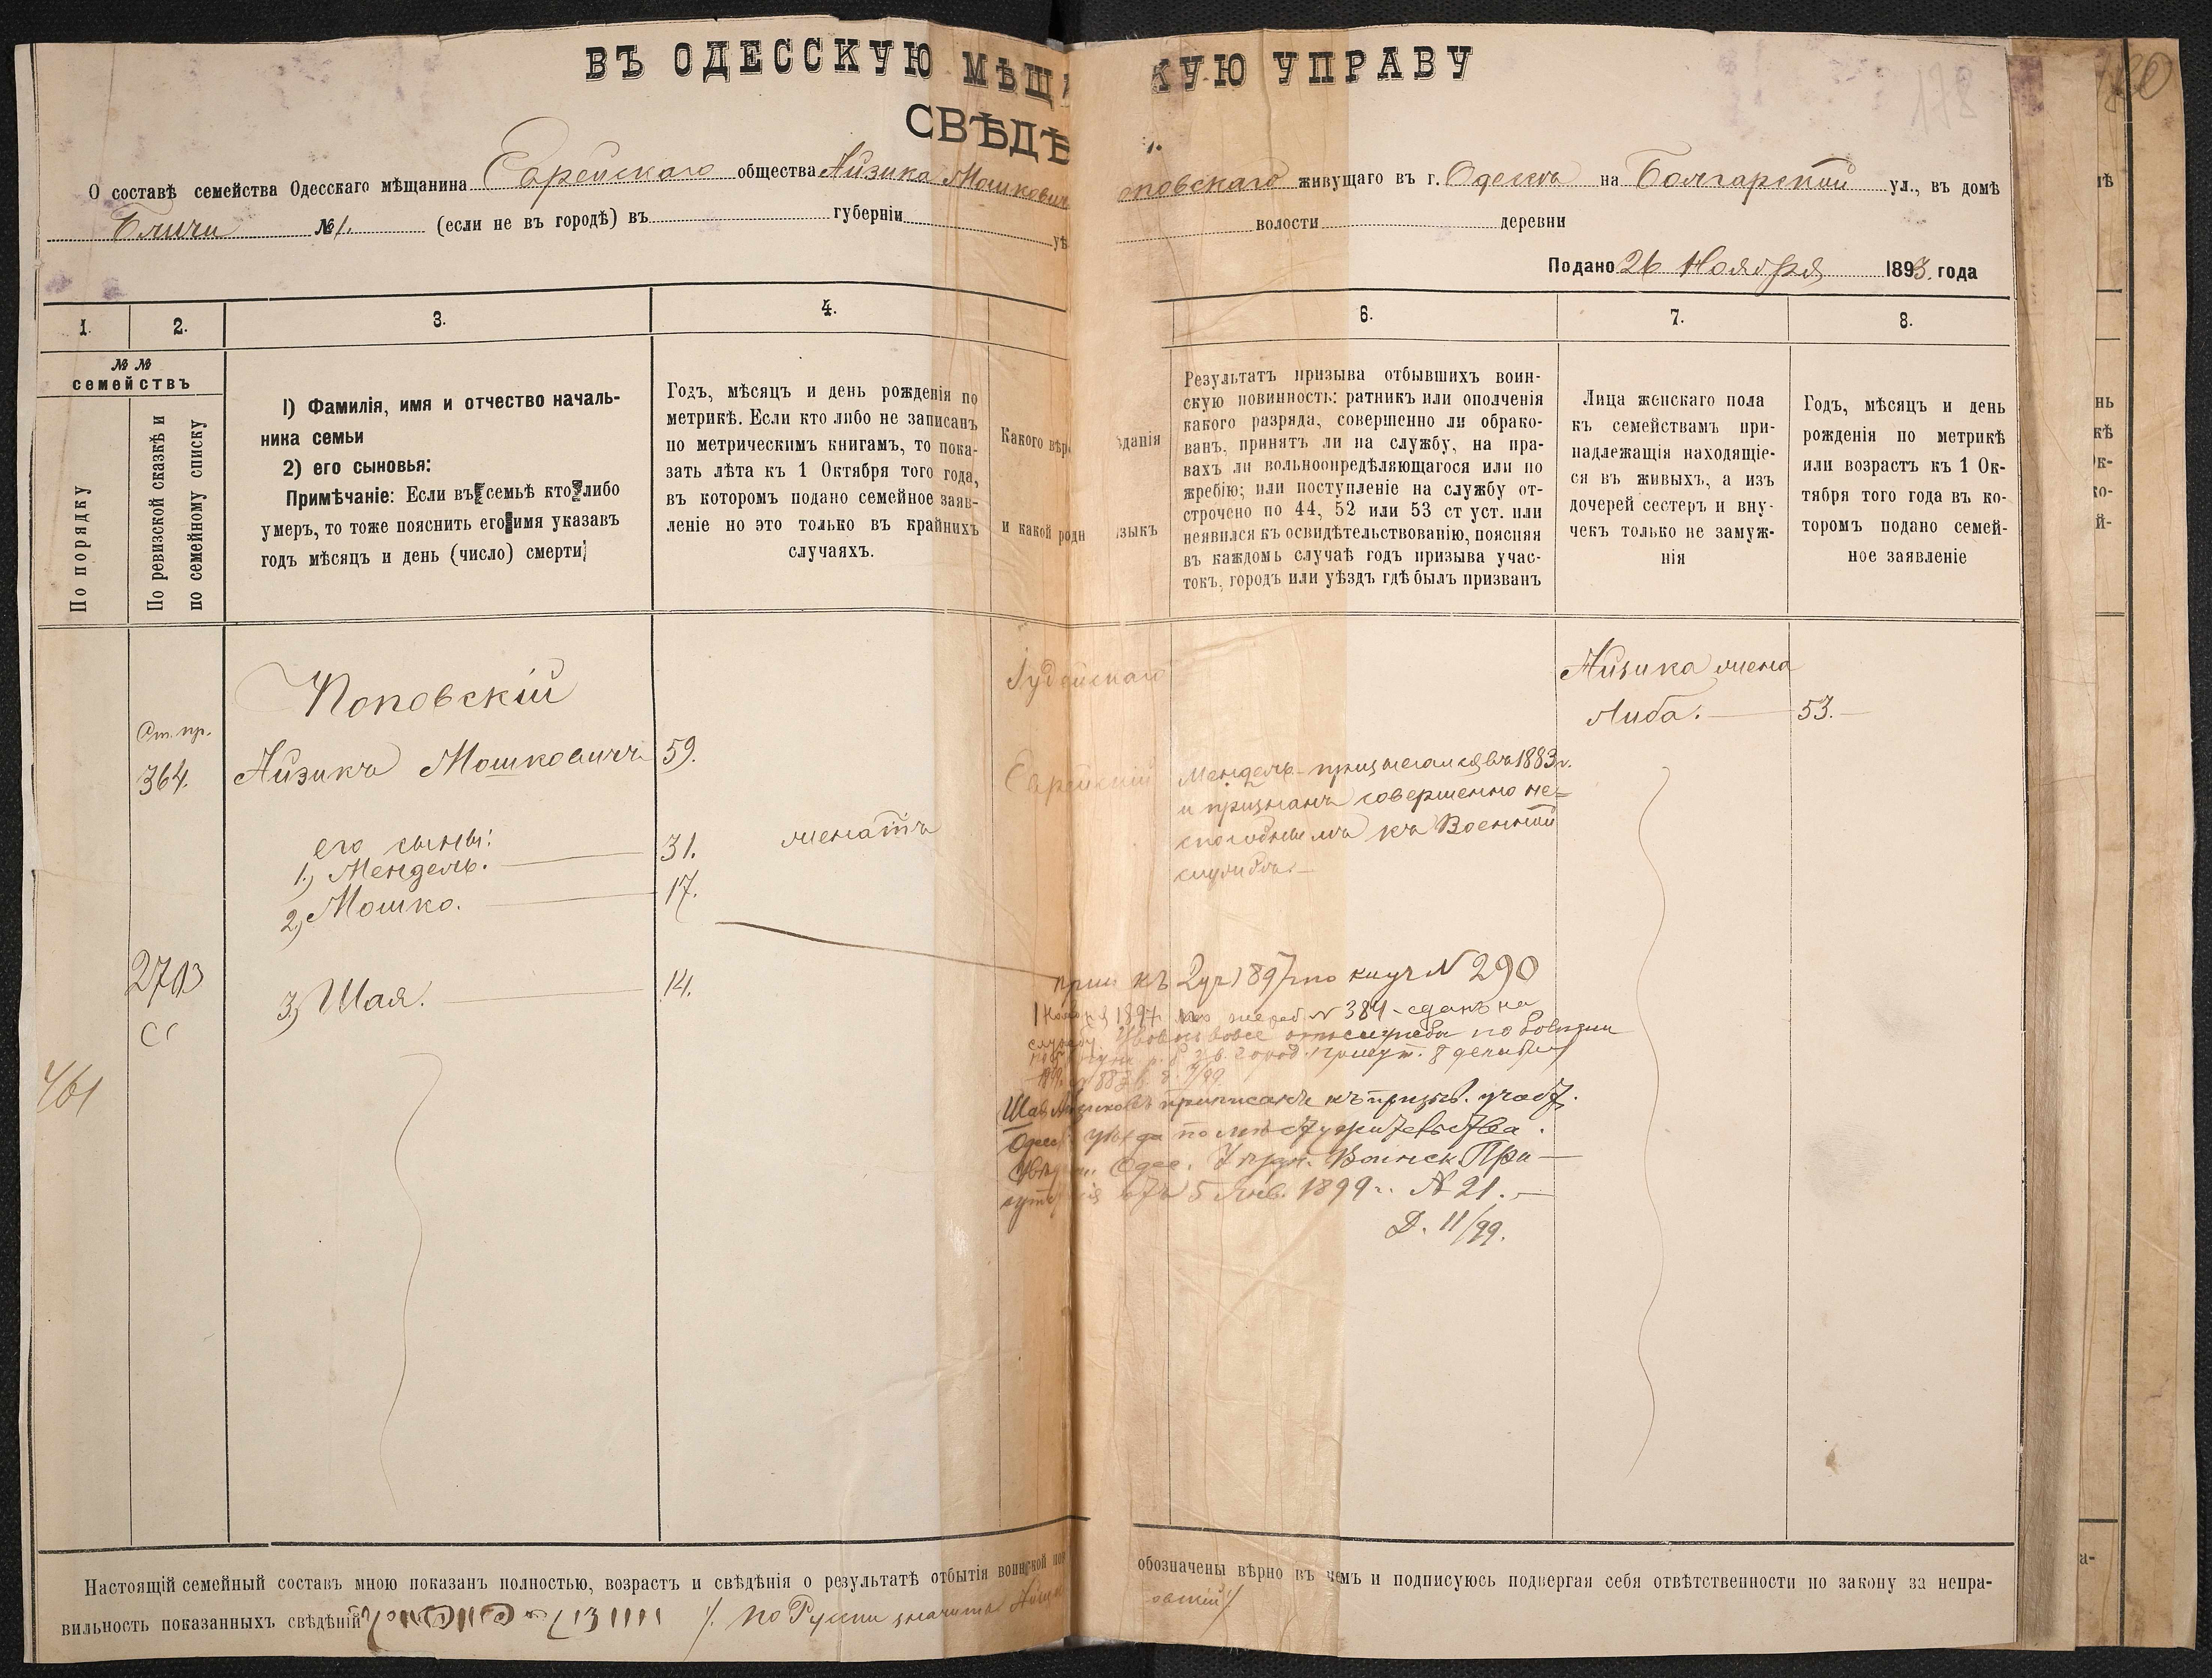 ВЪ ОДЕССКУЮ МѢЩ КУЮ УПРАВУ
СВѢДѢ
О составѣ семейства Одесскаго мѣщанина Еврейскаго общества Айзика Мошкович повскаго живущаго въ г. Одессѣ на Болгарской ул., въ домѣ
№ 1. (если не въ городѣ) въ губерніи уѣ волости деревни
Подано 26 Ноября 1893 года
1. 2. 3. 4. 6. 7. 8.
№ №
семействъ
По порядку
По ревизской сказкѣ и
по семейному списку
1) Фамилія, имя и отчество началь-
ника семьи
2) его сыновья:
Примѣчаніе: Если въ семьѣ кто либо
умеръ, то тоже пояснить его имя указавъ
годъ мѣсяцъ и день (число) смерти;
Годъ, мѣсяцъ и день рожденія по
метрикѣ. Если кто либо не записанъ
по метрическимъ книгамъ, то пока-
зать лѣта къ 1 Октября того года,
въ которомъ подано семейное заяв-
леніе но это только въ крайнихъ
случаяхъ.
Какого вѣро зданія
и какой родн языкъ
Результатъ призыва отбывшихъ воин-
скую повинность: ратникъ или ополченія
какого разряда, совершенно ли обрако-
ванъ, принятъ ли на службу, на пра-
вахъ ли вольноопредѣляющагося или по
жребію; или поступленіе на службу от-
строчено по 44, 52 или 53 ст уст. или
неявился къ освидѣтельствованію, поясняя
въ каждомъ случаѣ годъ призыва учас-
токъ, городъ или уѣздъ гдѣ былъ призванъ
Лица женскаго пола
къ семействамъ при-
надлежащія находящіе-
ся въ живыхъ, а изъ
дочерей сестеръ и вну-
чекъ только не замуж-
нія
Годъ, мѣсяцъ и день
рожденія по метрикѣ
или возрастъ къ 1 Ок-
тября того года въ ко-
торомъ подано семей-
ное заявленіе
Поповскій
Іудейскаго
Айзика жена
Либа. 53.
Ст. пр.
364. Айзикъ Мошковичъ 59.
Еврейскій
Мендель призывался въ 1883 г.
и признанъ совершенно не=
способнымъ къ Военной
службѣ.
его сыны:
1, Мендель. 31. женатъ
2, Мошко. 17.
2713
3, Шая. 14.
461
прип къ 2 уч 1897 по 290
1897 № 384 сданъ на
службу. вовсе по болѣзни
Шая приписанъ къ призыв.
Одес. уѣзда по
Одес. Воинск. При
5 Янв. 1899 г. № 21.
Д. 11/99.
Настоящій семейный составъ мною показанъ полностью, возрастъ и свѣдѣнія о результатѣ отбытія воинской пов обозначены вѣрно въ чемъ и подписуюсь подвергая себя отвѣтственности по закону за непра-
вильность показанныхъ свѣдѣній По Русски значитъ